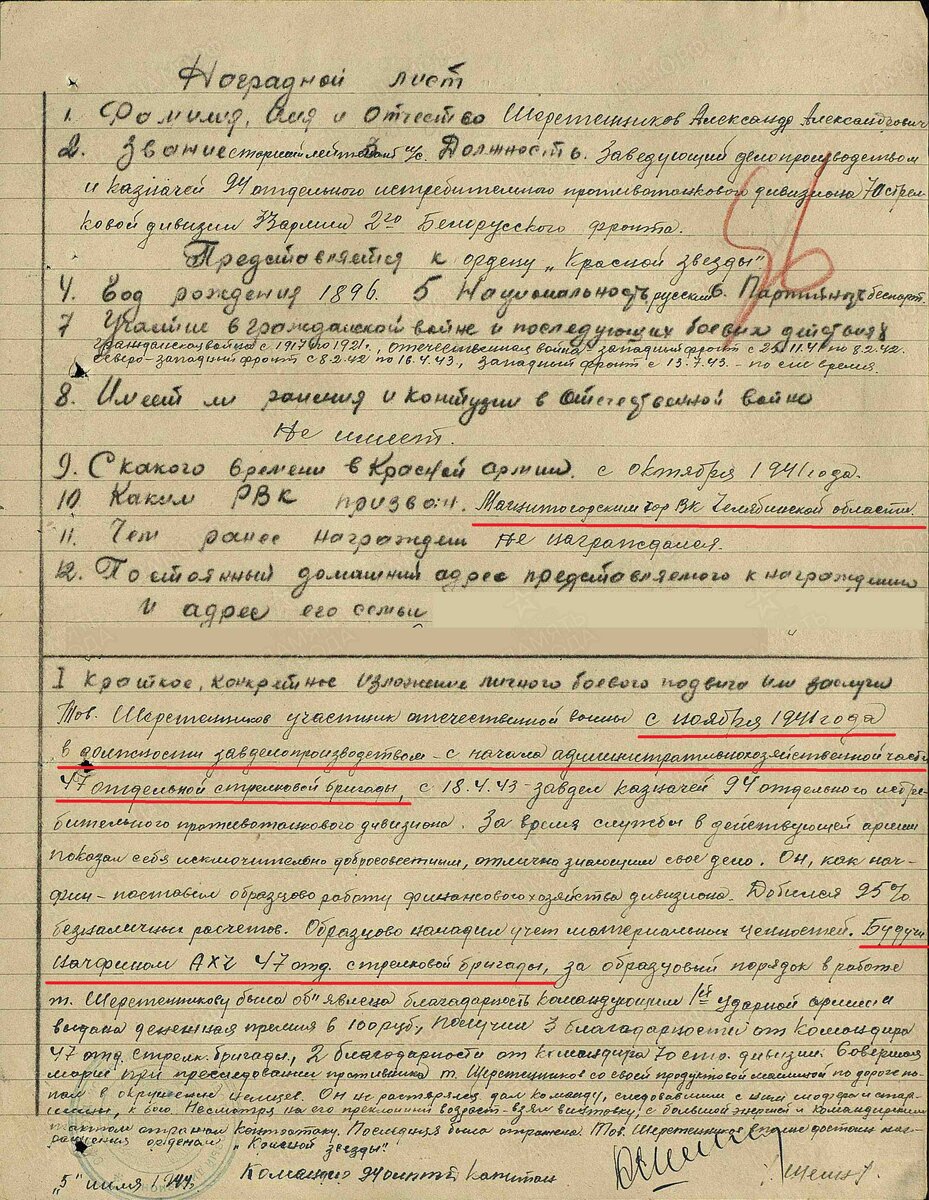 Наградной лист
1. Фамилия, Имя и Отчество Шеретенщиков Александр Александрович
2. Звание старший лейтенант и/с 3. Должность. Заведующий делопроизводством
и казначей 94 отдельного истребительного противотанкового дивизиона 70 стрел-
ковой дивизии 33 армии 2го Белорусского фронта.
Представляется к ордену „Красной звезды"
56
4. Год рождения 1896. 5 Национальность русский 6. Партийность беспарт.
7 Участие в гражданской войне и последующих боевых действиях
гражданская война с 1917 по 1921г., отечественная война западный фронт с 25.11.41 по 8.2.42.
Северо-западный фронт с 8.2.42 по 16.4.43, западный фронт с 13.7.43. - по сие время.
8. Имеет ли ранения и контузии в отечественной войне
Не имеет.
9. С какого времени в Красной армии. с октября 1941 года.
10 Каким РВК призван. Магнитогорским гор ВК Челябинской области.
11. Чем ранее награжден не награждался.
12. Постоянный домашний адрес представляемого к награждению
и адрес его семьи
I Краткое, конкретное изложение личного боевого подвига или заслуги
Тов. Шеретенщиков участник отечественной войны с ноября 1941 года
в должности завделопроизводством - с начала административнохозяйственной части
47 отдельной стрелковой бригады, с 18.4.43 - завдел казначей 94 отдельного истре-
бительного противотанкового дивизиона. За время службы в действующей армии
показал себя исключительно добросовестным, отлично знающим свое дело. Он, как нач-
фин - поставил образцово работу финансового хозяйства дивизиона. Добился 95%
безналичных расчетов. Образцово наладил учет материальных ценностей. Будучи
начфином АХЧ 47 отд. стрелковой бригады, за образцовый порядок в работе
т. Шеретенщикову была об"явлена благодарность командующим 1ой ударной армии и
выдана денежная премия в 100 руб., получил 3 благодарности от командира
47 отд. стрелк. бригады, 2 благодарности от командира 70 стр. дивизии. Совершая
марш при преследовании противника т. Шеретенщиков со своей продуктовой машиной по дороге по-
пал в окружение немцев. Он не растерялся дал команду, следовавшим с ним шоферу и стар-
шины, к бою. Несмотря на его преклонный возраст - взял винтовку, с большой энергией и командирским
тактом отражал контратаку. Последняя была отражена. Тов. Шеретенщиков вполне достоин наг-
раждения орденом „Красной звезды".
Командир 94 оиптд капитан
„5" июля 1944г.